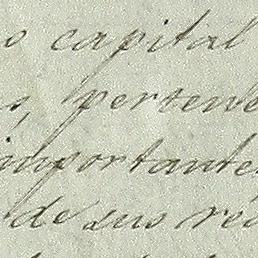 o capital
s, pertene
importante
de sus re